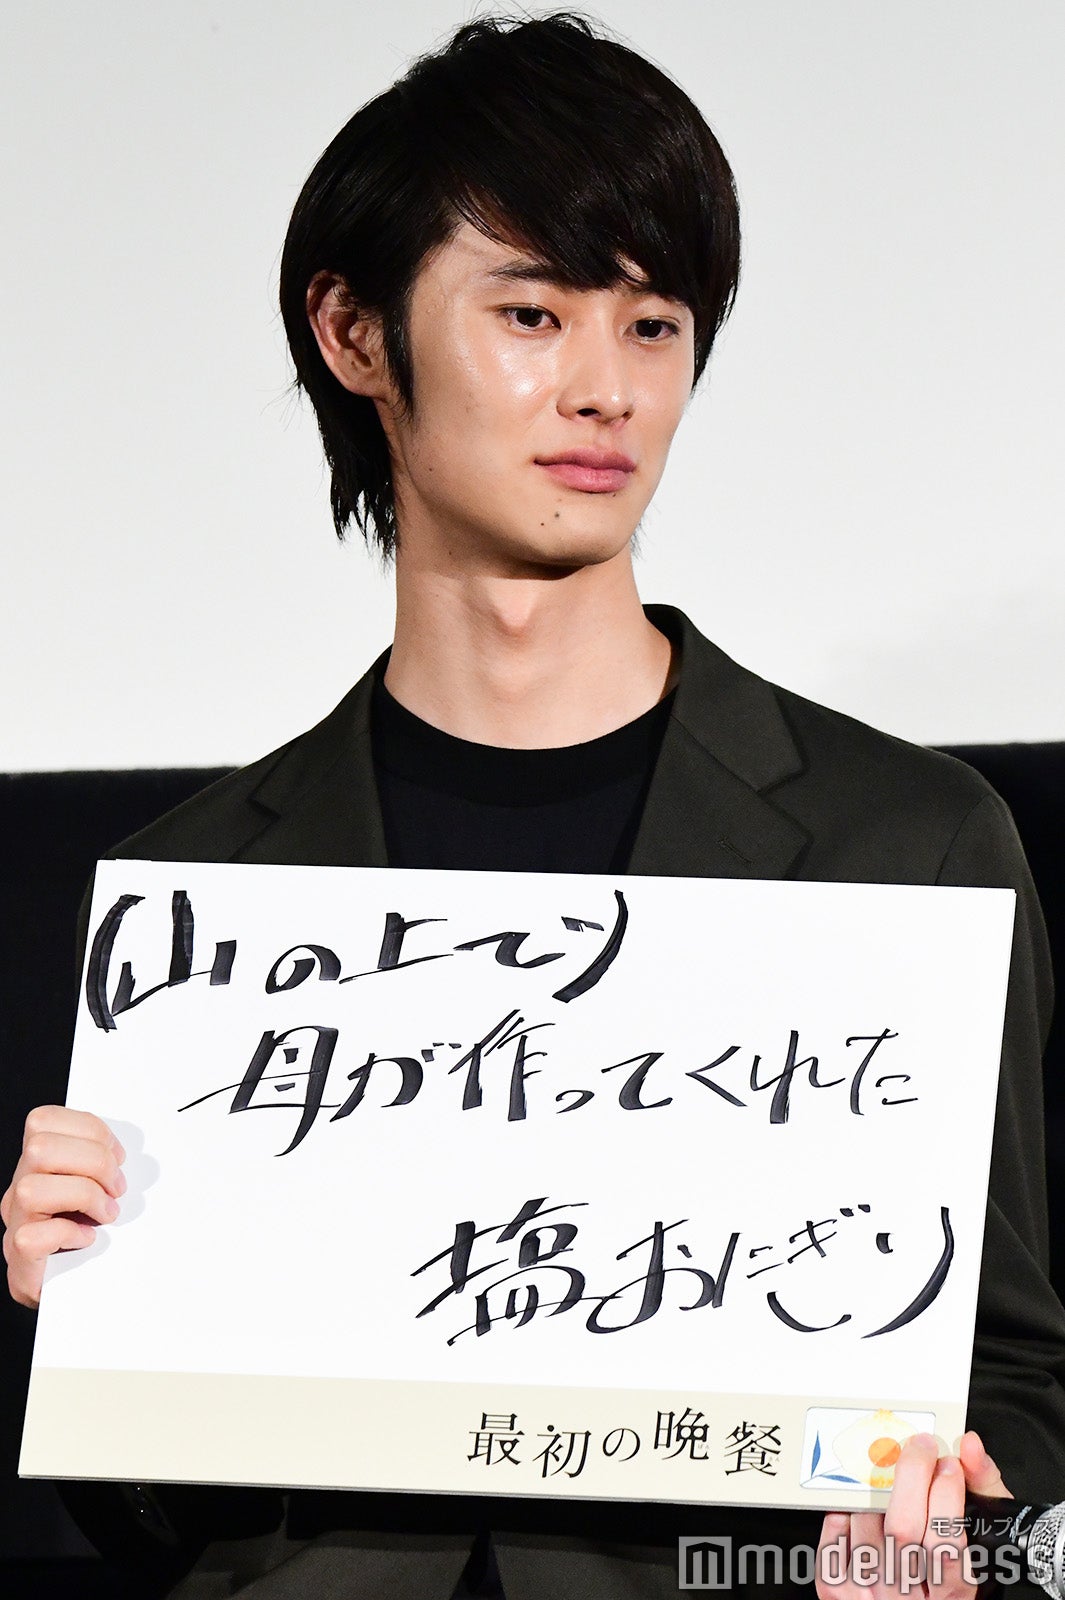 (山の上で)
母が作ってくれた
塩おにぎり
最初の晩餐
モデルプレス
modelpress